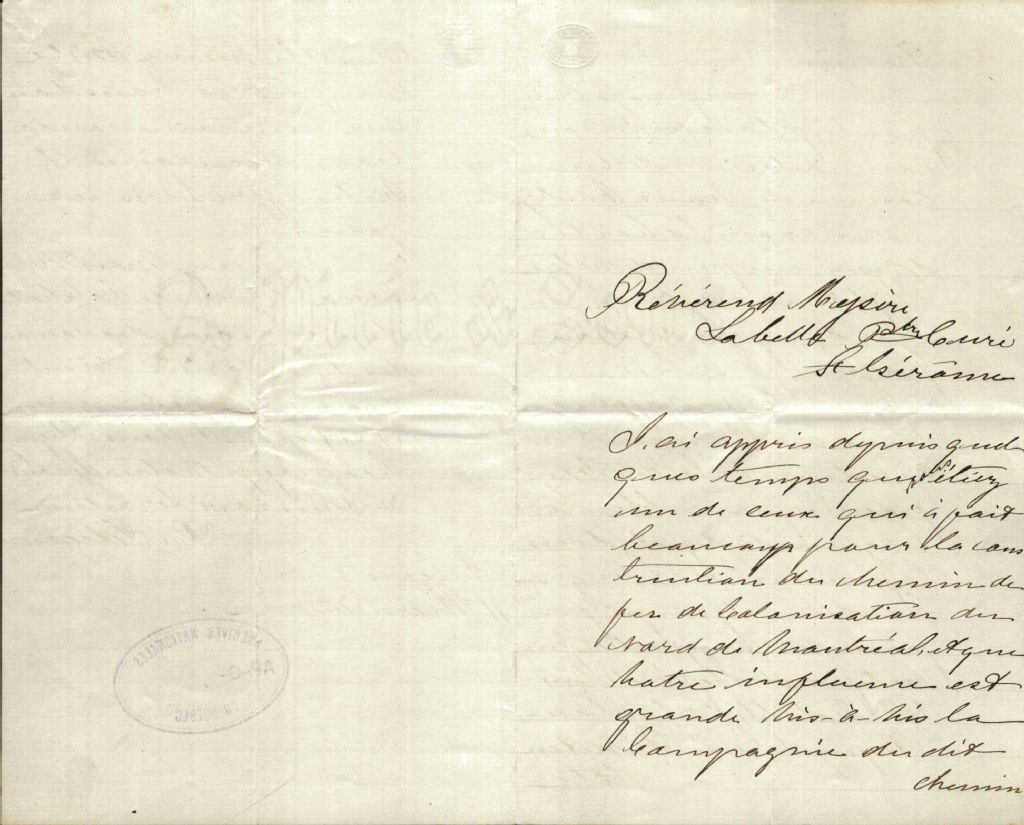 Révérend Messire
Labelle Ptre Curé
St Gérôme
J'ai appris depuis quel
ques temps que v. étiez
un de ceux qui à fait
beaucoup pour la cons
truction du chemin de
fer de Colonisation du
Nord de Montréal, et que
votre influence est
grande vis-à-vis la
Compagnie du dit
chemin
ARCHIVES NATIONALES
AP-G-
QUÉBEC